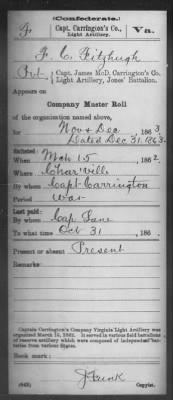 (Confederate.)
J Capt. Carrington's Co., Light Artillery. Va.
F. C. Fitzhugh
Pvt, Capt. James McD. Carrington's Co.
Light Artillery, Jones' Battalion.
Appears on
Company Muster Roll
of the organization named above,
for Nov & Dec, 1863.
Dated Dec 31, 1863.
Enlisted:
When Mch 15, 1862.
Where Char'ville
By whom Capt Carrington
Period War
Last paid:
By whom Cap. Lane
To what time Oct 31, 186 .
Present or absent Present
Remarks:
Captain Carrington's Company Virginia Light Artillery was
organized March 15, 1862. It served in various field battalions
of reserve artillery which were composed of independent bat-
teries from various States.
Book mark:
J Funk
(642) Copyist.